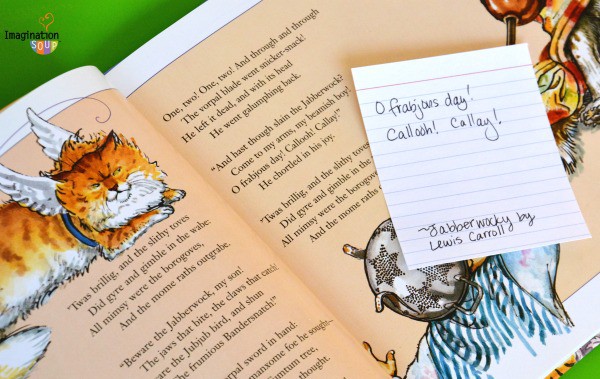 Imagination
SOUP
'Twas brillig, and the slithy toves
Did gyre and gimble in the wabe:
All mimsy were the borogoves,
And the mome raths outgrabe.
"Beware the Jabberwock, my son!
The jaws that bite, the claws that catch!
ware the Jubjub bird, and shun
The frumious Bandersnatch!"
rpal sword in hand:
manxome foe he sought—
umtum tree,
thought.
One, two! One, two! And through and through
The vorpal blade went snicker-snack!
He left it dead, and with its head
He went galumphing back.
"And hast thou slain the Jabberwock?
Come to my arms, my beamish boy!
O frabjous day! Callooh! Callay!"
He chortled in his joy.
'Twas brillig, and the slithy toves
Did gyre and gimble in the
All mimsy were the borogoves
And the mome raths
O frabjous day!
Callooh! Callay!
~Jabberwocky by
Lewis Carroll